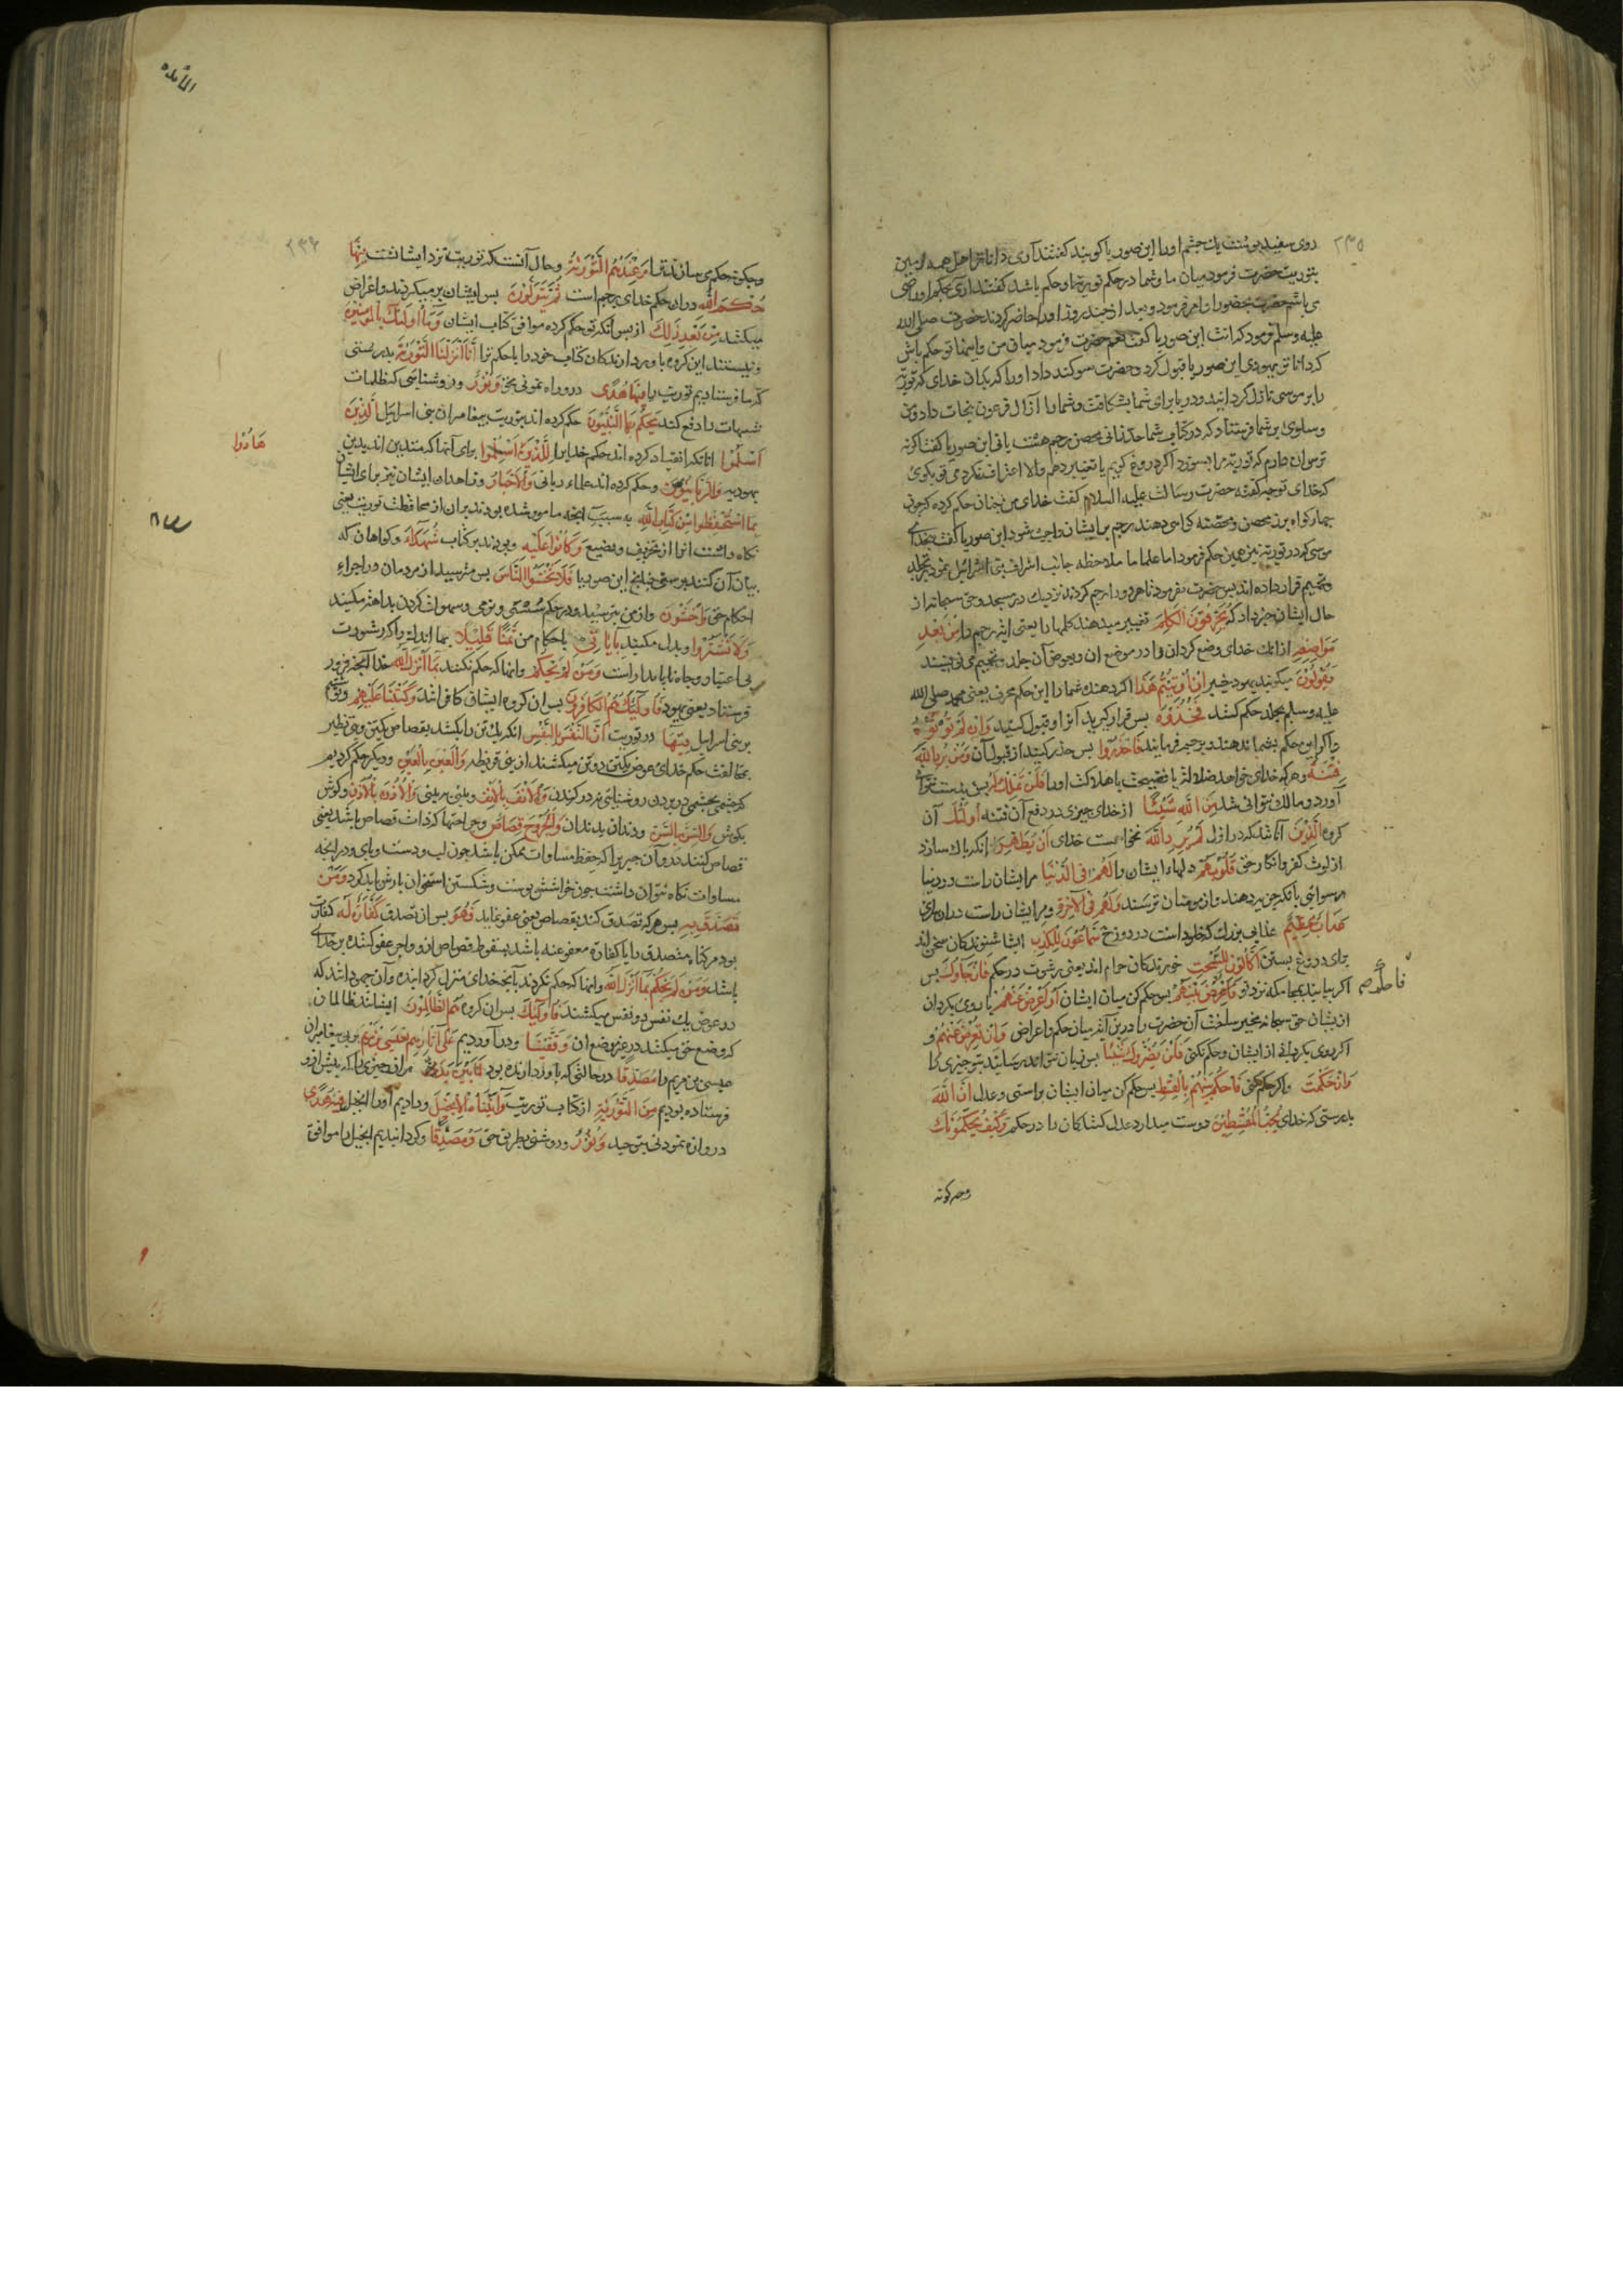 ٢٣٥
روی سفید پوست یک چشم اورا ابن صوریا گویند گفتند آری داناتر اهل
بتوریت حضرت فرمود میان ما وشما در حکم توریة او حکم باشد گفتند آری بحکم او راضی
می باشیم حضرت بحضور او امر فرمود وبعد از چند روز اورا حاضر کردند حضرت صلی الله
علیه وسلم فرمود که انت ابن صوریا گفت نعم حضرت فرمود میان من واینها تو حکم باش
که دانا تو یهودی ابن صوریا قبول کرد وحضرت سوکند داد اورا که بدان خدای که توریة
را بر موسی نازل کردانید ودریا برای شما بشکافت وشما را از آل فرعون نجات داد ومن
وسلوی بر شما فرستاد که در کتاب شما حد زانی محصن رجم هست یا نی ابن صوریا گفت اگر نه
ترس آن دارم که توریة مرا بسوزد اگر دروغ گویم یا تغییر دهم والا اعتراف نکردمی تو بگوی
که خدای تو چه گفته حضرت رسالت علیه السلام گفت خدای من چنان حکم کرده که چون
چهار گواه بر زنا محصن ومحصنه گواهی دهند رجم بر ایشان واجب شود ابن صوریا گفت بخدای
موسی که در توریة نیز همین حکم فرمود اما علما ما ملاحظه جانب اشراف بنی اسرائیل نموده تجلید
وتحمیم قرار داده اند پس حضرت بفرمود تا هر دو را رجم کردند نزدیک در مسجد وحق سبحانه از
حال ایشان خبر داد که یُحَرِّفُونَ الْکَلِمَ تغییر میدهند کلمها را یعنی ایة رجم را مِنْ بَعْدِ
مَوَاضِعِهِ از انک خدای وضع کرد آن را در موضع ان وبعوض آن جلد وتحمیم می نویسند
یَقُولُونَ میگویند یهود خیبر اِنْ اُوتِیتُمْ هَذَا اگر دهند شمارا این حکم محرف یعنی محمد صلی الله
علیه وسلم بجلد حکم کند فَخُذُوهُ پس فرا گیرید آنرا وقبول کنید وَاِنْ لَمْ تُؤْتَوْهُ
واگر این حکم بشما ندهند وبرجم فرمایند فَاحْذَرُوا پس حذر کنید از قبول آن وَمَنْ یُرِدِ اللّٰهُ
فِتْنَتَهُ وهر که خدای خواهد ضلالة یا فضیحت یا هلاکت اورا فَلَنْ تَمْلِکَ لَهُ پس بدست نتوانی
آورد ومالک نتوانی شد مِنَ اللّٰهِ شَیْئًا از خدای چیزی در دفع آن فتنه اُولٰئِکَ آن
کروه الَّذِینَ آنانند که در ازل لَمْ یُرِدِ اللّٰهُ نخواست خدای اَنْ یُطَهِّرَ انکه پاک سازد
از لوث کفر وانکار حق قُلُوبَهُمْ دلهاء ایشان را لَهُمْ فِی الدُّنْیَا مرایشان راست در دنیا
رسوایی بآنکه جزیه دهند واز مومنان ترسند وَلَهُمْ فِی الْآخِرَةِ ومرایشان راست در ان سرای
عَذَابٌ عَظِیمٌ عذابی بزرک که خلود است در دوزخ سَمَّاعُونَ لِلْکَذِبِ ایشان شنوندکان سخن اند
برای دروغ بستن اَکَّالُونَ لِلسُّحْتِ خورندکان حرام اند یعنی رشوت در حکم فَاِنْ جَاءُوکَ پس
فاحکم صح
اگر بیایند بمحاکمه نزد تو بَیْنَهُمْ پس حکم کن میان ایشان اَوْ اَعْرِضْ عَنْهُمْ یا روی بکردان
از یشان حق سبحانه مخیر ساخت آن حضرت را درین آیة میان حکم واعراض وَاِنْ تُعْرِضْ عَنْهُمْ و
اگر روی بکردانی از ایشان وحکم نکنی فَلَنْ یَضُرُّوکَ شَیْئًا پس زیان نتوانند رسانید بتو چیزی را
وَاِنْ حَکَمْتَ واگر حکم کنی فَاحْکُمْ بَیْنَهُمْ بِالْقِسْطِ پس حکم کن میان ایشان براستی وعدل اِنَّ اللّٰهَ
بدرستی که خدای یُحِبُّ الْمُقْسِطِینَ دوست میدارد عدل کنندکان را در حکم وَکَیْفَ یُحَکِّمُونَکَ
وچکونه
المائده
٢٣٦
وچکونه حکم می سازند ترا وَعِنْدَهُمُ التَّوْرٰیةُ وحال آنست که توریة نزد ایشانست فِیهَا
حُکْمُ اللّٰهِ در ان حکم خدای برجم است ثُمَّ یَتَوَلَّوْنَ پس ایشان بر میگردند واعراض
میکنند مِنْ بَعْدِ ذٰلِکَ از پس آنکه تو حکم کرده موافق کتاب ایشان وَمَا اُولٰئِکَ بِالْمُؤْمِنِینَ
ونیستند این کروه باور دارندکان کتاب خود را یا حکم ترا اِنَّا اَنْزَلْنَا التَّوْرٰیةَ بدرستی
که ما فرستادیم توریت را فِیهَا هُدًی درو راه نمونی بحق وَنُورٌ وروشنایی که ظلمات
شبهات را دفع کند یَحْکُمُ بِهَا النَّبِیُّونَ حکم کرده اند بتوریت پیغامبران بنی اسرایل الَّذِینَ
اَسْلَمُوا انانکه انقیاد کرده اند حکم خدایرا لِلَّذِینَ برای آنها که متدین اند بدین
هَادُوا
یهودیه وَالرَّبَّانِیُّونَ وحکم کرده اند علماء ربانی وَالْاَحْبَارُ وزاهدان ایشان نیز برای ایشان
بِمَا اسْتُحْفِظُوا مِنْ کِتَابِ اللّٰهِ به سبب آنچه مامور شده بودند بران از محافظت توریت یعنی
نکاه داشت انرا از تحریف وتضییع وَکَانُوا عَلَیْهِ وبودند بر کتاب شُهَدَاءَ وکواهان که
بیان آن کنند برستی چنانچ ابن صوریا فَلَا تَخْشَوُا النَّاسَ پس مترسید از مردمان در اجراء
احکام حق وَاخْشَوْنِ واز من بترسید ودر حکم سستی ونرمی وسهولت کردن مداهنه مکنید
وَلَا تَشْتَرُوا وبدل مکنید بِاٰیَاتِی باحکام من ثَمَنًا قَلِیلًا بهاء اندک واگر رشوت
بی اعتبار وجاه ناپایدار است وَمَنْ لَمْ یَحْکُمْ وانها که حکم نکنند بِمَا اَنْزَلَ اللّٰهُ بدانچه خدا فرو
فرستاد یعنی یهود فَاُولٰئِکَ هُمُ الْکَافِرُونَ پس ان کروه ایشان کافرانند وَکَتَبْنَا عَلَیْهِمْ ونوشتیم
بر بنی اسرایل فِیهَا در توریت اَنَّ النَّفْسَ بِالنَّفْسِ انکه یک تن را بکشند بقصاص یکتن وبنی نظیر
بمخالفت حکم خدای عوض یکتن دو تن میکشند از بنی قریظه وَالْعَیْنَ بِالْعَیْنِ ودیکر حکم کردیم
که چشمی بچشمی وَالْاَنْفَ بِالْاَنْفِ وبینی به بینی وَالْاُذُنَ بِالْاُذُنِ وگوش
بگوش وَالسِّنَّ بِالسِّنِّ ودندان بدندان وَالْجُرُوحَ قِصَاصٌ وجراحتها که ذات قصاص باشد یعنی
قصاص کنند درو آن چیزیرا که حفظ مساوات ممکن باشد چون لب ودست وپای ودر انچه
مساوات نکاه نتوان داشت چون خراشش پوست وشکستن استخوان بارش باید کرد وَمَنْ
تَصَدَّقَ بِهِ پس هر که تصدق کند بقصاص یعنی عفو نماید فَهُوَ پس ان تصدق کَفَّارَةٌ لَهُ کفارت
بود مر کناه متصدق را یا کفارة معفو عنه باشد بسقوط قصاص ازو واجر عفو کننده بر خدای
باشد وَمَنْ لَمْ یَحْکُمْ بِمَا اَنْزَلَ اللّٰهُ وانها که حکم نکردند بآنچه خدای منزل کردانیده وآن جهودانند که
در عوض یک نفس دو نفس میکشند فَاُولٰئِکَ پس ان کروه هُمُ الظَّالِمُونَ ایشانند ظالمان
که وضع حق میکنند در غیر موضع ان وَقَفَّیْنَا ودر آوردیم عَلٰی اٰثَارِهِمْ بِعِیسَی ابْنِ مَرْیَمَ بر پی پیغامبران
عیسی بن مریم را مُصَدِّقًا در حالتی که باور دارنده بود لِمَا بَیْنَ یَدَیْهِ مران چیزی را که پیش ازو
فرستاده بودیم مِنَ التَّوْرٰیةِ از کتاب توریت وَاٰتَیْنَاهُ الْاِنْجِیلَ ودادیم اورا انجیل فِیهِ هُدًی
درو راه نمودنی بتوحید وَنُورٌ وروشنی بطریق حق وَمُصَدِّقًا وکردانیدیم انجیل را موافق